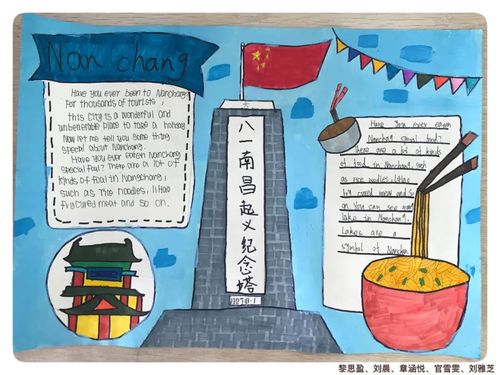 Nan chang
Have you ever been to Nanchang
For thousands of tourists,
this City is a wonderful and
place to take a holiday
Now let me tell you some thing
special about Nanchang.
Have you ever eaten Nanchang
special food? There are a lot of
kinds of food in Nanchang,
such as rice noodles, lihao
fry cured meat and so on.
八一南昌起义纪念塔
1927.8.1
Have you ever eaten
Nanchang special food
there are a lot of kinds
of food in Nanchang, such
as rice noodles,
fry cured meat and so
on. You can see many
lake in Nanchang.
Lakes are a
symbol of Nanchang
黎思盈、刘晨、章涵悦、官雪雯、刘雅芝